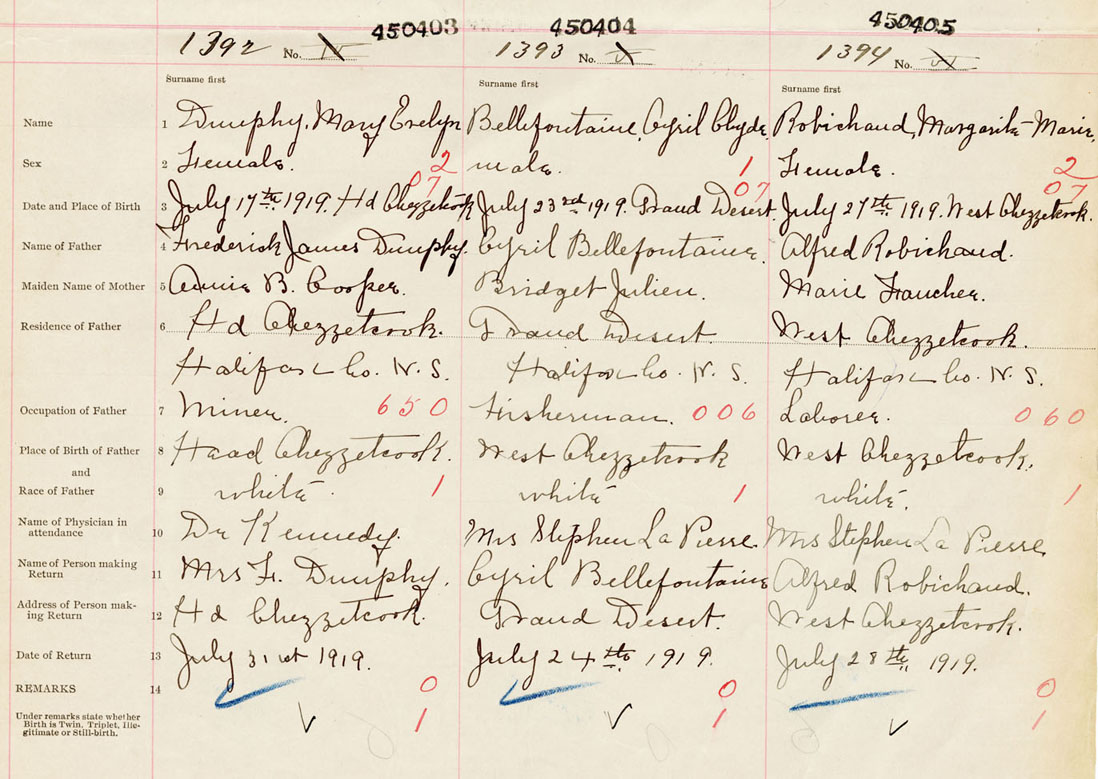 450403 450404 450405
1392 No. IV 1393 No. V 1394 No. VI
Surname first Surname first Surname first
Name 1 Dunphy, Mary Evelyn Bellefontaine, Cyril Clyde. Robichaud, Margarite Marie.
Sex 2 Female. 2 male. 1 Female. 2
07 07 07
Date and Place of Birth 3 July 17th 1919. Hd Chezzetcook July 23rd 1919. Grand Desert. July 27th 1919. West Chezzetcook.
Name of Father 4 Frederick James Dunphy. Cyril Bellefontaine. Alfred Robichaud.
Maiden Name of Mother 5 Annie B. Cooper. Bridget Julien. Marie Faucher.
Residence of Father 6 Hd Chezzetcook. Grand Desert. West Chezzetcook.
Halifax Co. N. S. Halifax Co. N. S. Halifax Co. N. S.
Occupation of Father 7 Miner. 650 Fisherman. 006 Laborer. 060
Place of Birth of Father 8 Head Chezzetcook. West Chezzetcook West Chezzetcook.
and
Race of Father 9 white. 1 white 1 white. 1
Name of Physician in
attendance 10 Dr Kennedy. Mrs Stephen La Pierre. Mrs Stephen La Pierre.
Name of Person making
Return 11 Mrs F. Dunphy. Cyril Bellefontaine Alfred Robichaud.
Address of Person mak-
ing Return 12 Hd Chezzetcook. Grand Desert. West Chezzetcook.
Date of Return 13 July 31st 1919. July 24th 1919. July 28th 1919.
REMARKS 14 0 0 0
Under remarks state whether
Birth is Twin, Triplet, Ille-
gitimate or Still-birth. 1 1 1